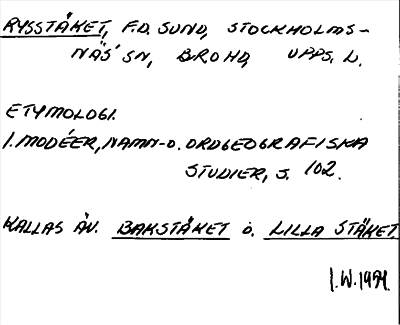 RYSSTÄKET, F.D. SUND, STOCKHOLMS-
NÄS' SN, BRO HD, UPPS. L.
ETYMOLOGI.
I. MODÉER, NAMN- O. ORDGEOGRAFISKA
STUDIER, S. 102.
KALLAS ÄV. BAKSTÄKET O. LILLA STÄKET.
I.W. 1954.